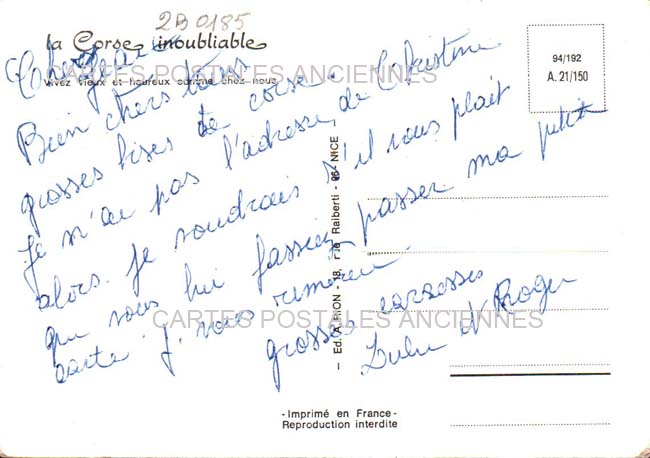 2B 0185
la Corse inoubliable
Vivez vieux et heureux comme chez nous
CARTES POSTALES ANCIENNES
94/192
A. 21/150
Bien chers tous
grosses bises de corse.
Je n'ai pas l'adresse de Christine
alors je voudrais s'il vous plait
que vous lui fassiez passer ma petite
carte. j. vous remercie.
grosses caresses
Lulu et Roger
CARTES POSTALES ANCIENNES
— Ed. A. RION - 18, rue Raiberti - 06 - NICE
-Imprimé en France-
Reproduction interdite